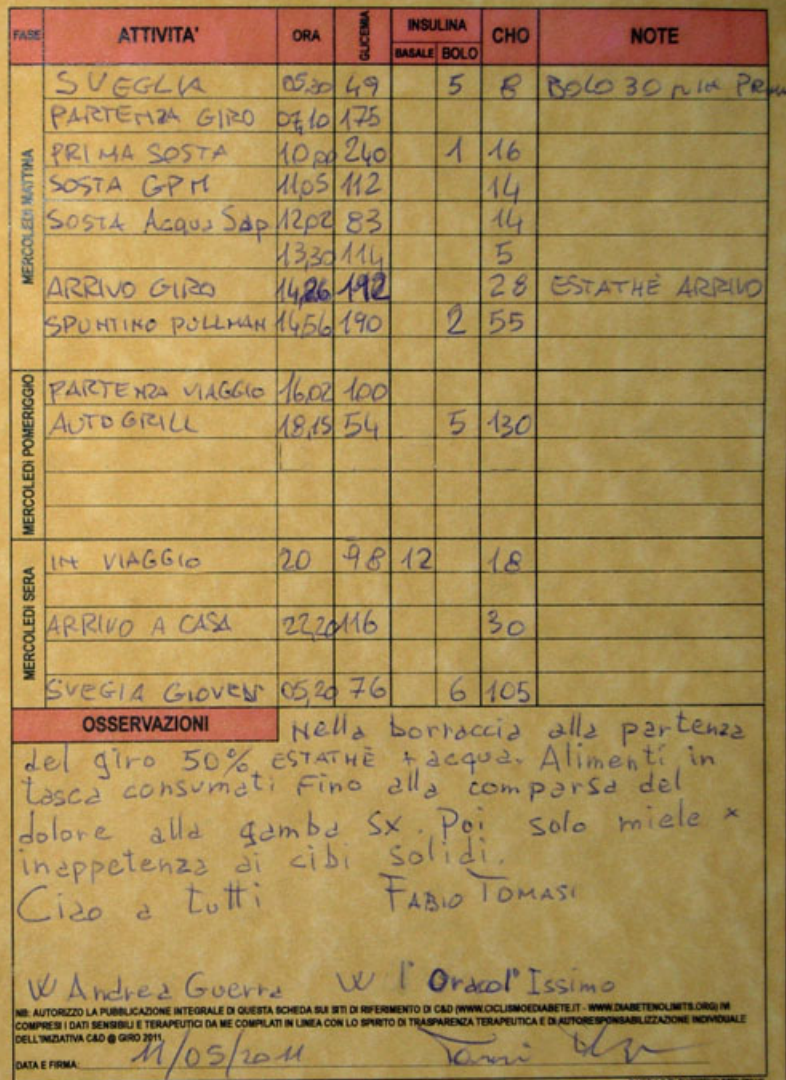 FASE ATTIVITA' ORA GLICEMIA INSULINA BASALE BOLO CHO NOTE
MERCOLEDÌ MATTINA
SVEGLIA 05,30 49 5 8 BOLO 30 MIN PRIMA
PARTENZA GIRO 07,10 175
PRIMA SOSTA 10,00 240 1 16
SOSTA GPM 11,05 112 14
SOSTA Acqua Sap 12,02 83 14
13,30 114 5
ARRIVO GIRO 14,26 192 28 ESTATHÈ ARRIVO
SPUNTINO PULLMAN 14,56 190 2 55
MERCOLEDÌ POMERIGGIO
PARTENZA VIAGGIO 16,02 100
AUTOGRILL 18,15 54 5 130
MERCOLEDÌ SERA
IN VIAGGIO 20 98 12 18
ARRIVO A CASA 22,20 116 30
SVEGIA GIOVEDÌ 05,20 76 6 105
OSSERVAZIONI Nella borraccia alla partenza
del giro 50% ESTATHÈ + acqua. Alimenti in
tasca consumati Fino alla comparsa del
dolore alla gamba Sx. Poi solo miele x
inappetenza ai cibi solidi.
Ciao a tutti FABIO TOMASI
W Andrea Guerra W l'Oracol'Issimo
NB: AUTORIZZO LA PUBBLICAZIONE INTEGRALE DI QUESTA SCHEDA SUI SITI DI RIFERIMENTO DI C&D (WWW.CICLISMOEDIABETE.IT - WWW.DIABETENOLIMITS.ORG) IVI
COMPRESI I DATI SENSIBILI E TERAPEUTICI DA ME COMPILATI IN LINEA CON LO SPIRITO DI TRASPARENZA TERAPEUTICA E DI AUTORESPONSABILIZZAZIONE INDIVIDUALE
DELL'INIZIATIVA C&D @ GIRO 2011.
DATA E FIRMA: 11/05/2011